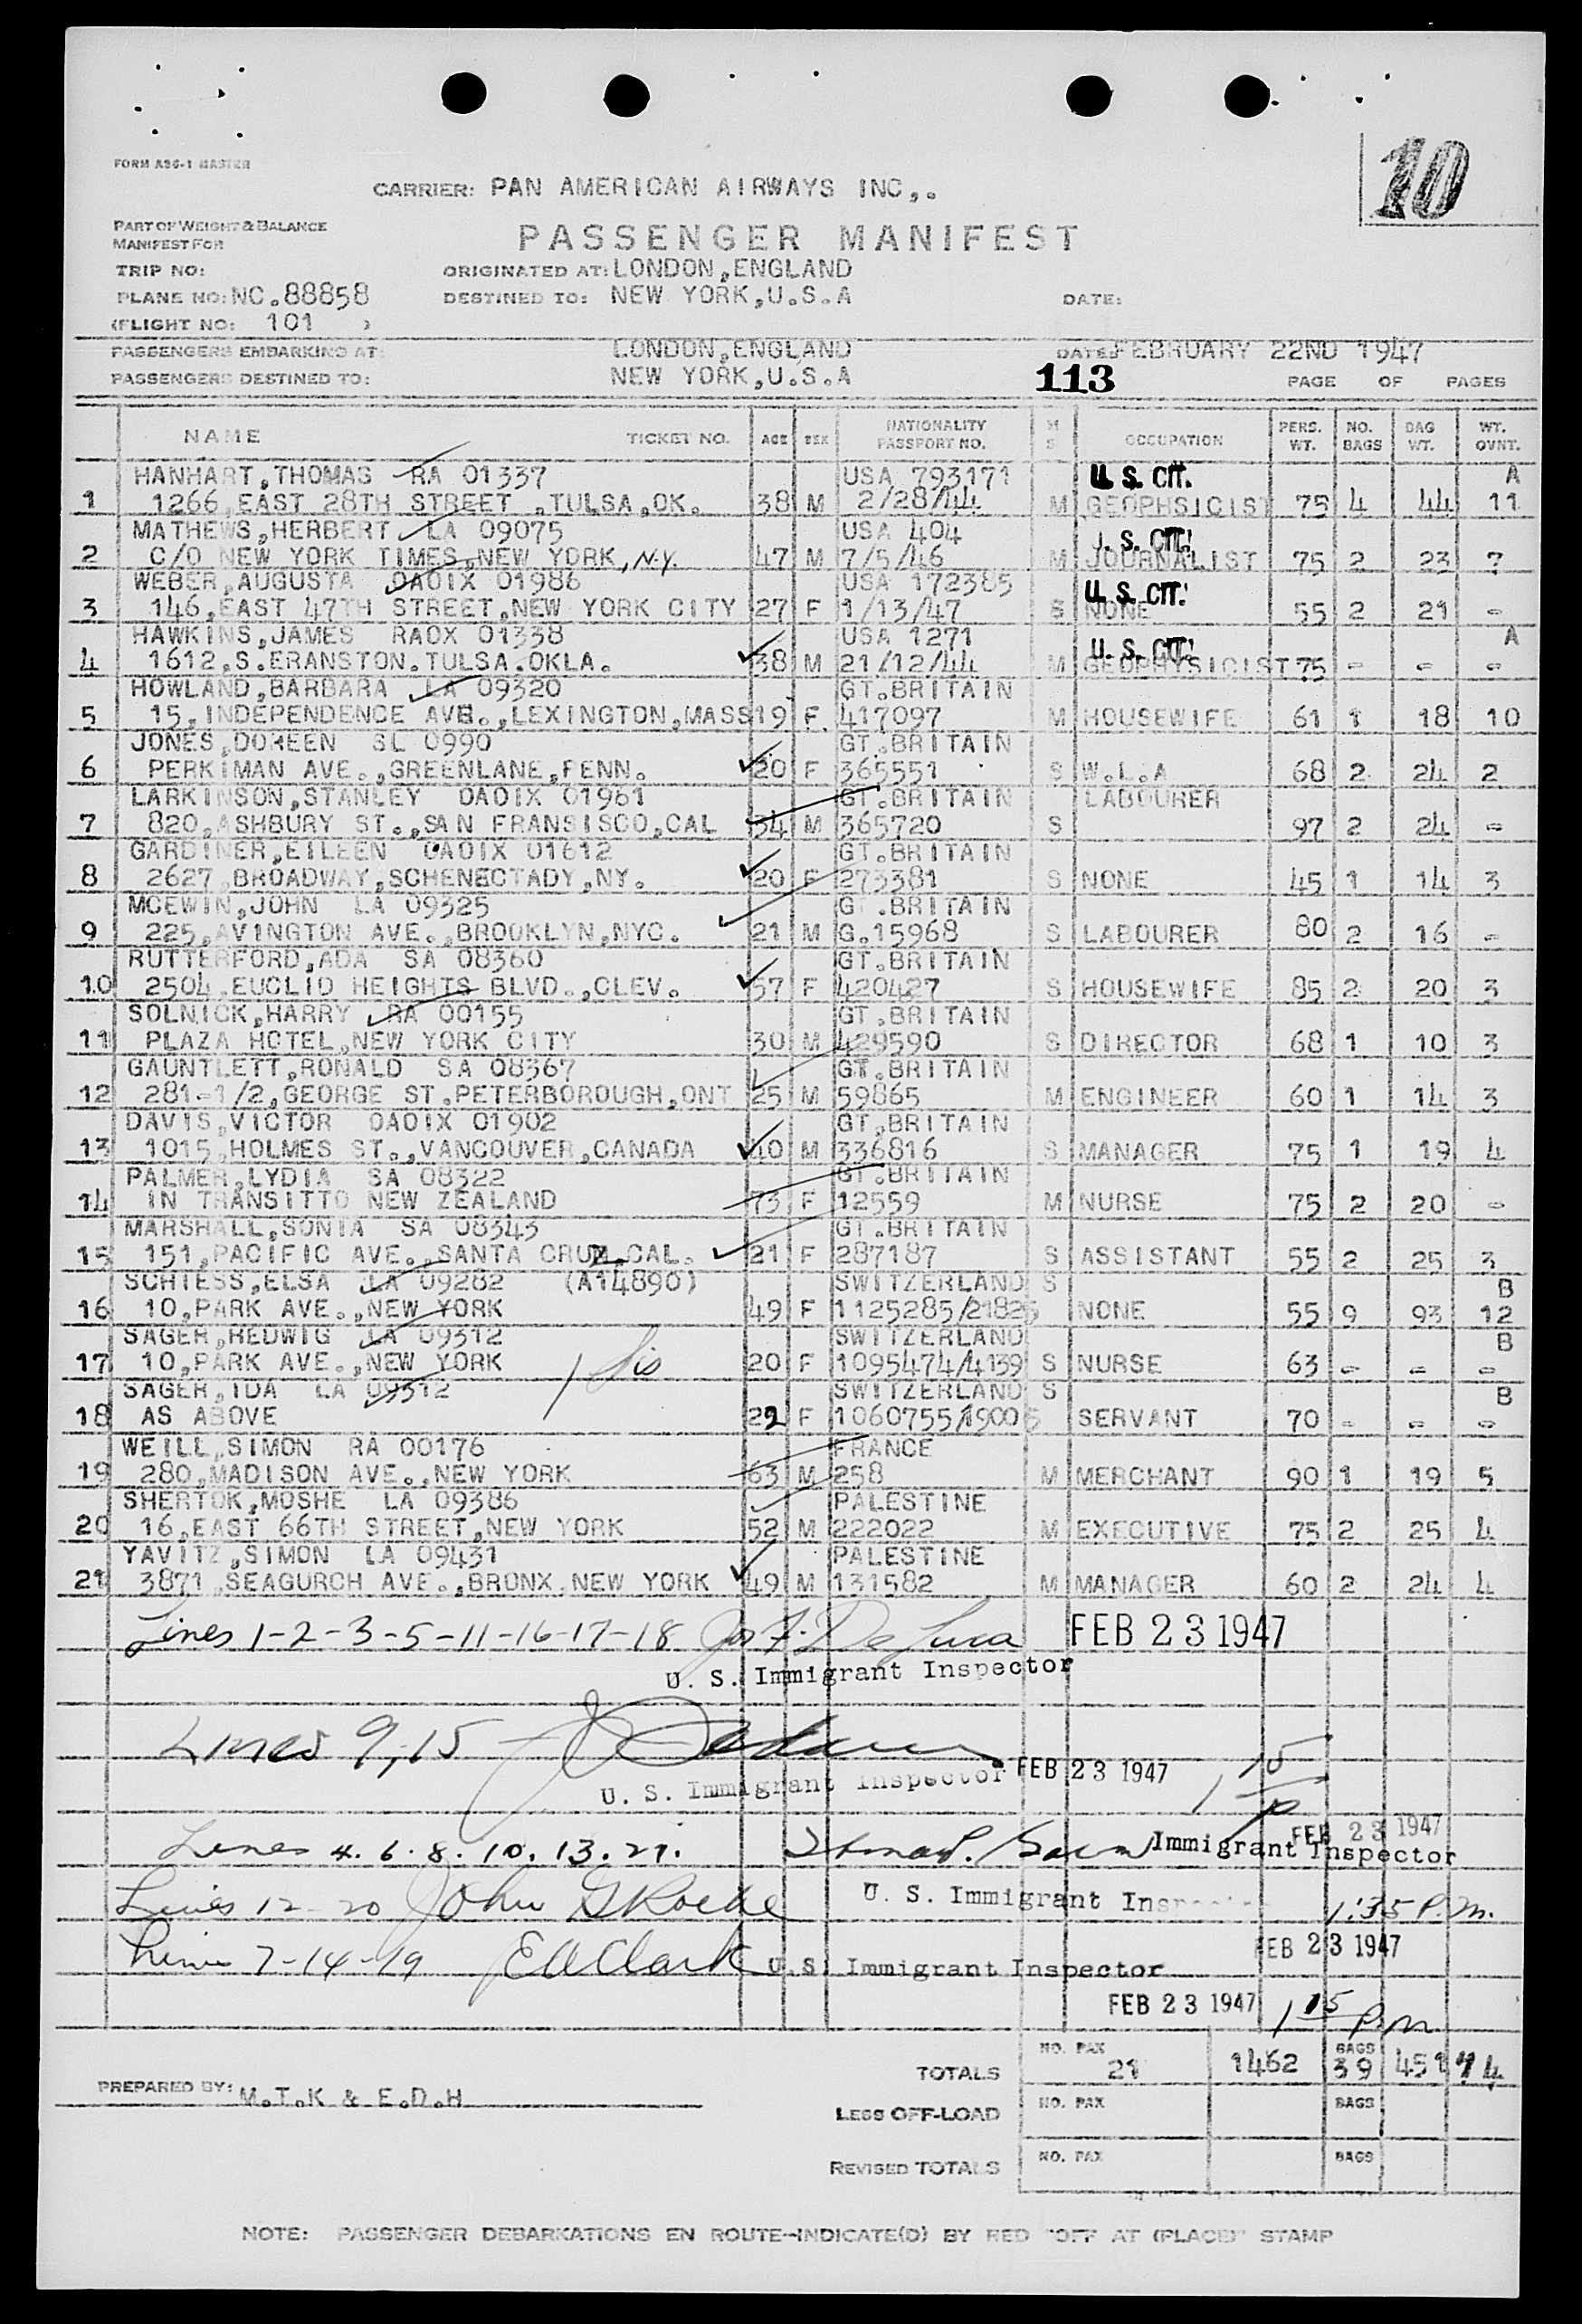 10
FORM AS6-1 MASTER
CARRIER: PAN AMERICAN AIRWAYS INC,.
PART OF WEIGHT & BALANCE
MANIFEST FOR
PASSENGER MANIFEST
TRIP NO:
ORIGINATED AT: LONDON,ENGLAND
PLANE NO: NC.88858
DESTINED TO: NEW YORK,U.S.A
DATE:
(FLIGHT NO: 101 )
PASSENGERS EMBARKING AT: LONDON,ENGLAND DATE: FEBRUARY 22ND 1947
PASSENGERS DESTINED TO: NEW YORK,U.S.A 113 PAGE OF PAGES
NAME TICKET NO. AGE SEX NATIONALITY PASSPORT NO. M S OCCUPATION PERS. WT. NO. BAGS BAG WT. WT. OVNT.
HANHART,THOMAS RA 01337 USA 793171 U. S. CIT. A
1 1266,EAST 28TH STREET ,TULSA,OK. 38 M 2/28/44 M GEOPHSICIST 75 4 44 11
MATHEWS,HERBERT LA 09075 USA 404 U. S. CIT.
2 C/O NEW YORK TIMES,NEW YORK, N.Y. 47 M 7/5/46 M JOURNALIST 75 2 23 7
WEBER,AUGUSTA OAOIX 01986 USA 172385 U. S. CIT.
3 146,EAST 47TH STREET,NEW YORK CITY 27 F 1/13/47 S NONE 55 2 21 -
HAWKINS,JAMES RAOX 01338 USA 1271 U. S. CIT. A
4 1612,S.ERANSTON.TULSA.OKLA. 38 M 21/12/44 M GEOPHYSICIST 75 - - -
HOWLAND,BARBARA LA 09320 GT.BRITAIN
5 15,INDEPENDENCE AVE.,LEXINGTON,MASS 19 F. 417097 M HOUSEWIFE 61 1 18 10
JONES,DOREEN SL 0990 GT.BRITAIN
6 PERKIMAN AVE.,GREENLANE,PENN. 20 F 365551 S W.L.A 68 2 24 2
LARKINSON,STANLEY OAOIX 01961 GT.BRITAIN LABOURER
7 820,ASHBURY ST.,SAN FRANSISCO,CAL 34 M 365720 S 97 2 24 -
GARDINER,EILEEN OAOIX 01612 GT.BRITAIN
8 2627,BROADWAY,SCHENECTADY,NY. 20 F 273381 S NONE 45 1 14 3
MCEWIN,JOHN LA 09325 G .BRITAIN
9 225,AVINGTON AVE.,BROOKLYN,NYC. 21 M G.15968 S LABOURER 80 2 16 -
RUTTERFORD,ADA SA 08360 GT.BRITAIN
10 2504,EUCLID HEIGHTS BLVD.,CLEV. 57 F 420427 S HOUSEWIFE 85 2 20 3
SOLNICK,HARRY RA 00155 GT.BRITAIN
11 PLAZA HOTEL,NEW YORK CITY 30 M 429590 S DIRECTOR 68 1 10 3
GAUNTLETT,RONALD SA 08367 GT.BRITAIN
12 281-1/2,GEORGE ST.PETERBOROUGH,ONT 25 M 59865 M ENGINEER 60 1 14 3
DAVIS,VICTOR OAOIX 01902 GT.BRITAIN
13 1015,HOLMES ST.,VANCOUVER,CANADA 40 M 336816 S MANAGER 75 1 19 4
PALMER,LYDIA SA 08322 GT.BRITAIN
14 IN TRANSITTO NEW ZEALAND 73 F 12559 M NURSE 75 2 20 -
MARSHALL,SONIA SA 08343 GT.BRITAIN
15 151,PACIFIC AVE.,SANTA CRUZ,CAL. 21 F 287187 S ASSISTANT 55 2 25 3
SCHIESS,ELSA LA 09282 (A14890) SWITZERLAND S B
16 10,PARK AVE.,NEW YORK 49 F 1125285/21825 NONE 55 9 93 12
SAGER,HEDWIG LA 09312 SWITZERLAND B
17 10,PARK AVE.,NEW YORK 20 F 1095474/4139 S NURSE 63 - - -
SAGER,IDA LA 09312 SWITZERLAND S B
18 AS ABOVE 22 F 1060755/19005 SERVANT 70 - - -
WEILL,SIMON RA 00176 FRANCE
19 280,MADISON AVE.,NEW YORK 63 M 258 M MERCHANT 90 1 19 5
SHERTOK,MOSHE LA 09386 PALESTINE
20 16,EAST 66TH STREET,NEW YORK 52 M 222022 M EXECUTIVE 75 2 25 4
YAVITZ,SIMON LA 09431 PALESTINE
21 3871,SEAGURCH AVE.,BRONX.NEW YORK 49 M 131582 M MANAGER 60 2 24 4
Lines 1-2-3-5-11-16-17-18 Jos F. De Luca FEB 23 1947
U. S. Immigrant Inspector
Lines 9,15 FEB 23 1947 1 15 p
U. S. Immigrant Inspector
Lines 4. 6. 8. 10. 13. 21. Immigrant Inspector FEB 23 1947
Lines 12-20 John G Roche U. S. Immigrant 1:35 P.M.
Lines 7-14-19 E W Clark U. S. Immigrant Inspector FEB 23 1947
FEB 23 1947 1 15 P.M
TOTALS NO. PAX 21 1462 BAGS 39 451 74
PREPARED BY: M.T.K & E.D.H
LESS OFF-LOAD NO. PAX BAGS
REVISED TOTALS NO. PAX BAGS
NOTE: PASSENGER DEBARKATIONS EN ROUTE—INDICATE(D) BY RED "OFF AT (PLACE)" STAMP